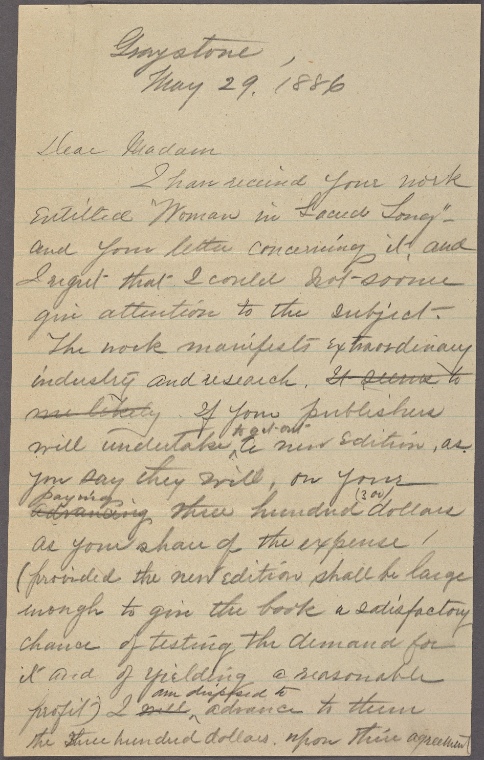 Graystone,
May 29. 1886
Dear Madam
I have received your work
entitled "Woman in Sacred Song"-
and your letter concerning it, and
I regret that I could not sooner
give attention to the subject.
The work manifests extraordinary
industry and research. It seems to
me likely. If your publishers
will undertake to get out the new Edition, as
you say they will, on your
advancing paying three hundred (300) dollars
as your share of the expense,
(provided the new edition shall be large
enough to give the book a satisfactory
chance of testing the demand for
it and of yielding a reasonable
profit) I will am disposed to advance to them
the three hundred dollars. upon their agreement